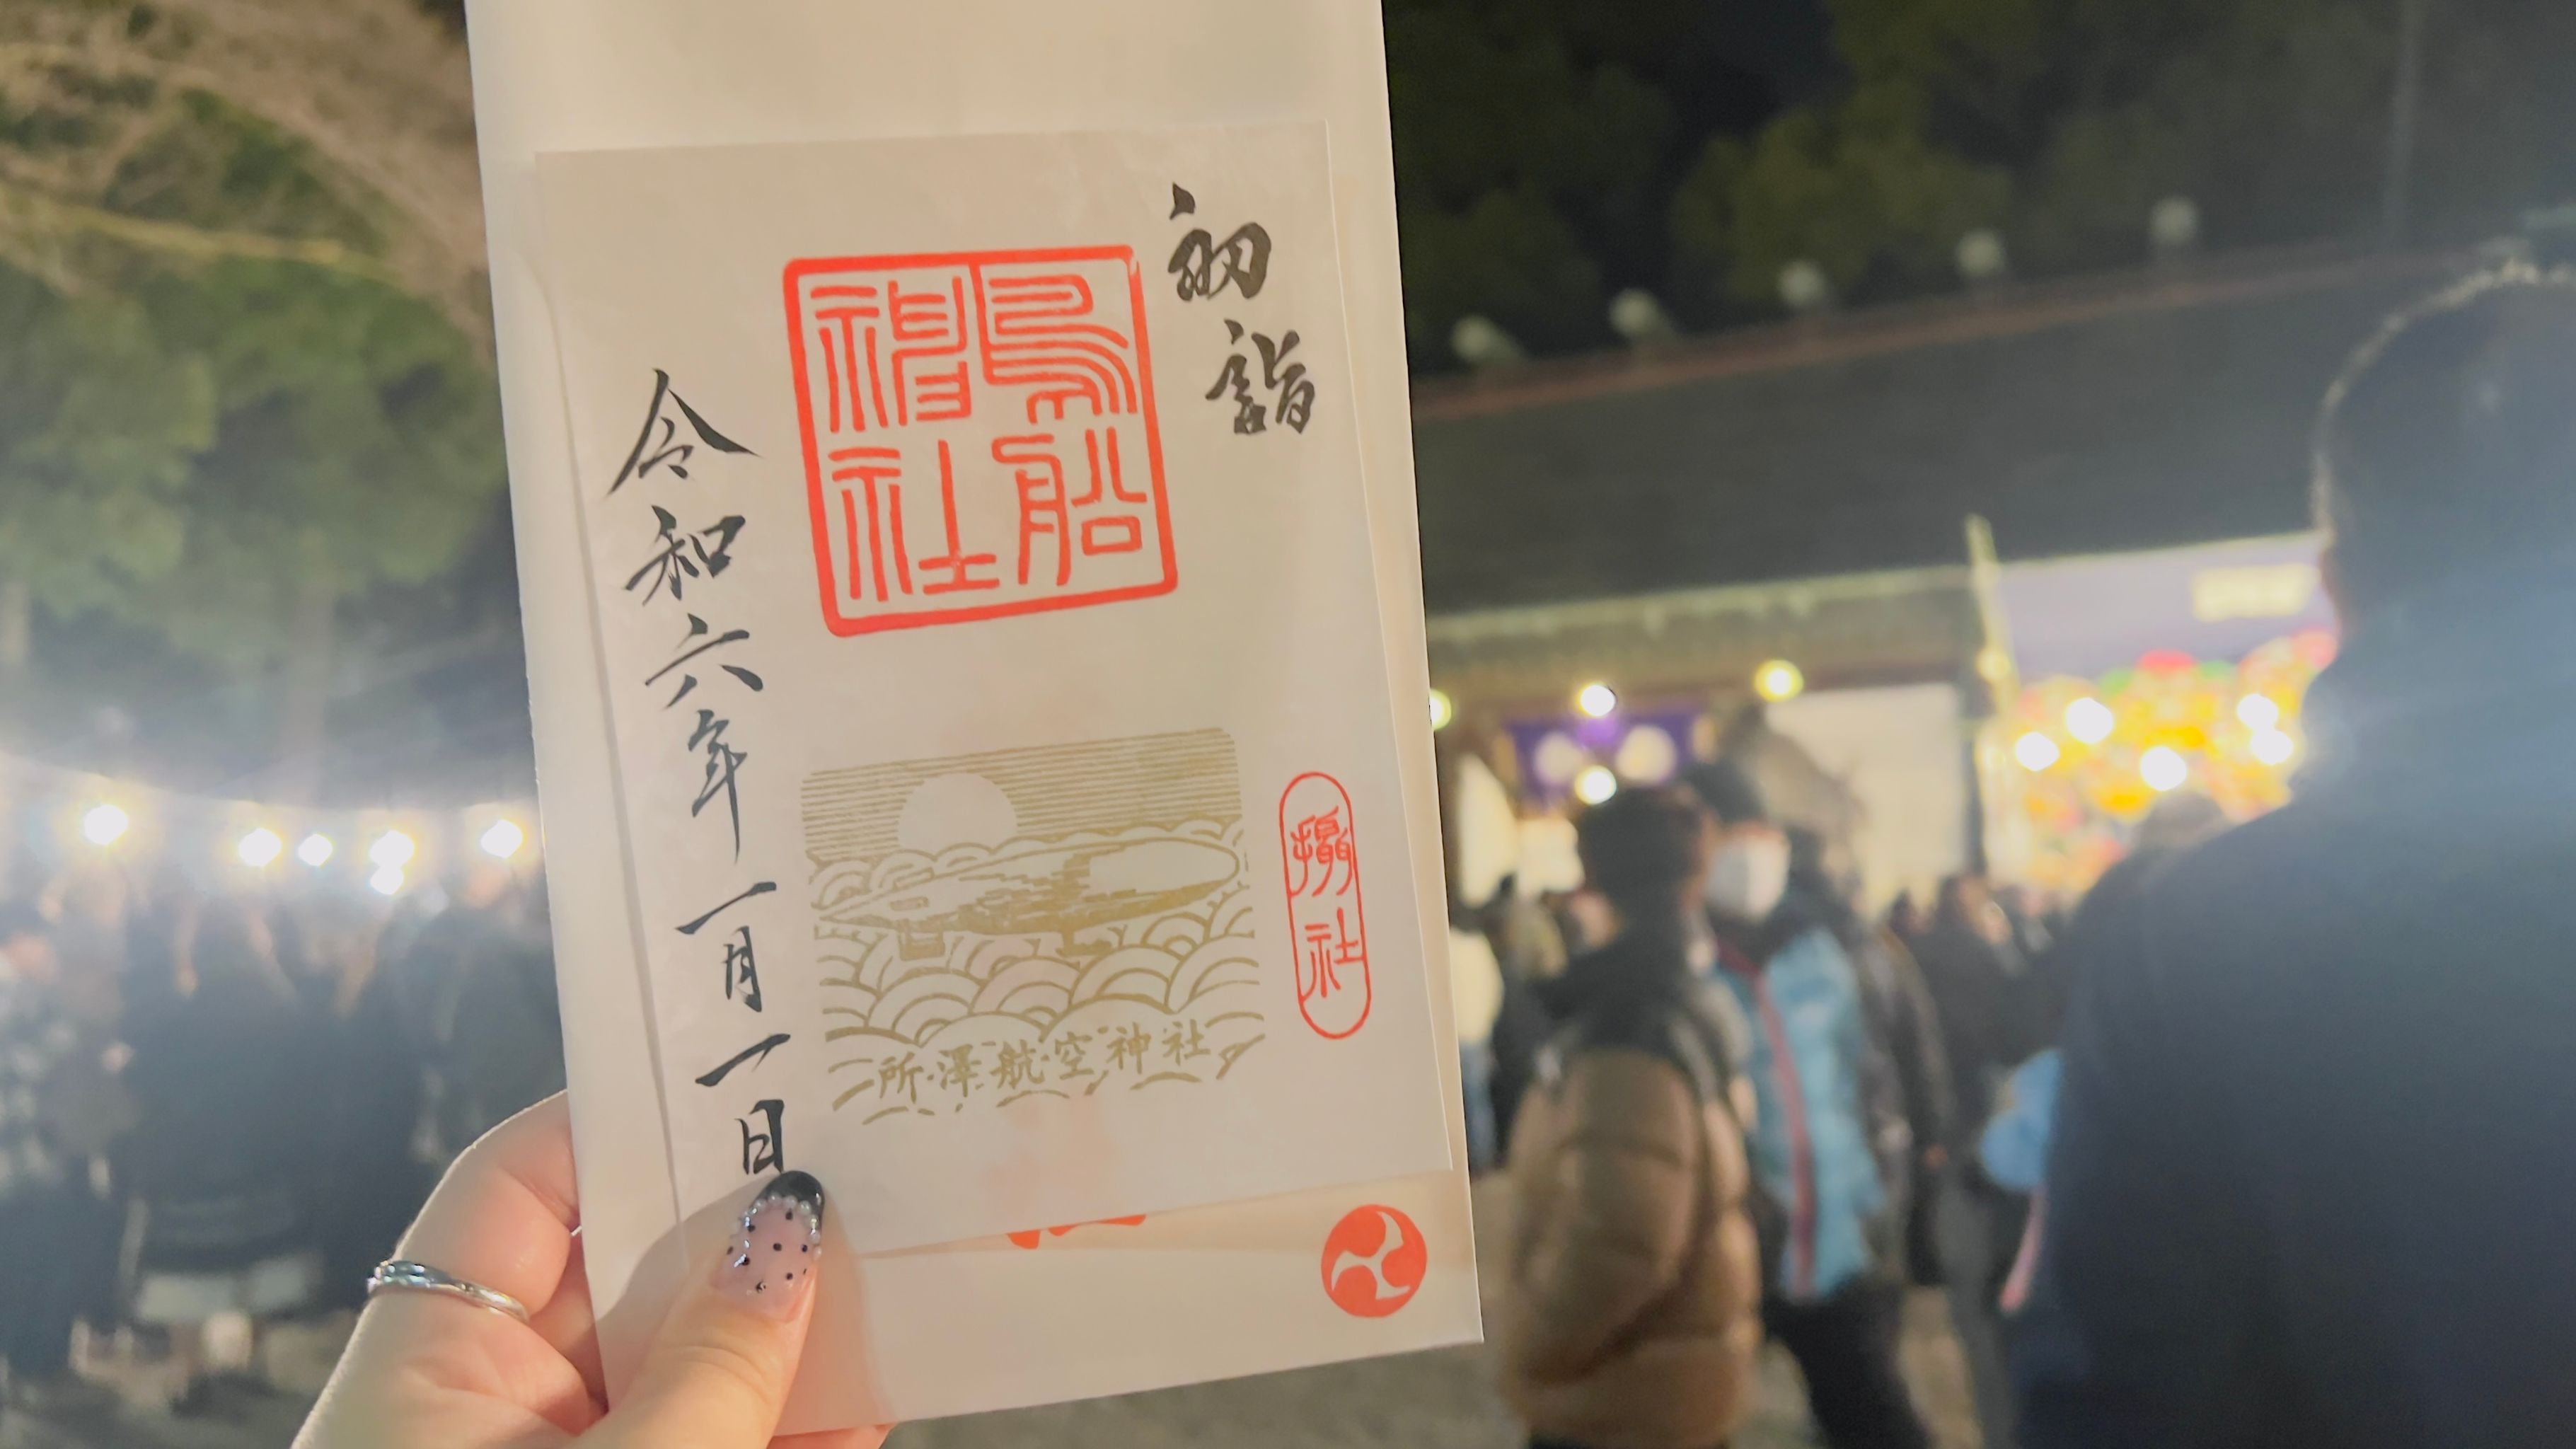 初詣
攝社
鳥船
神社
所澤航空神社
令和六年一月一日